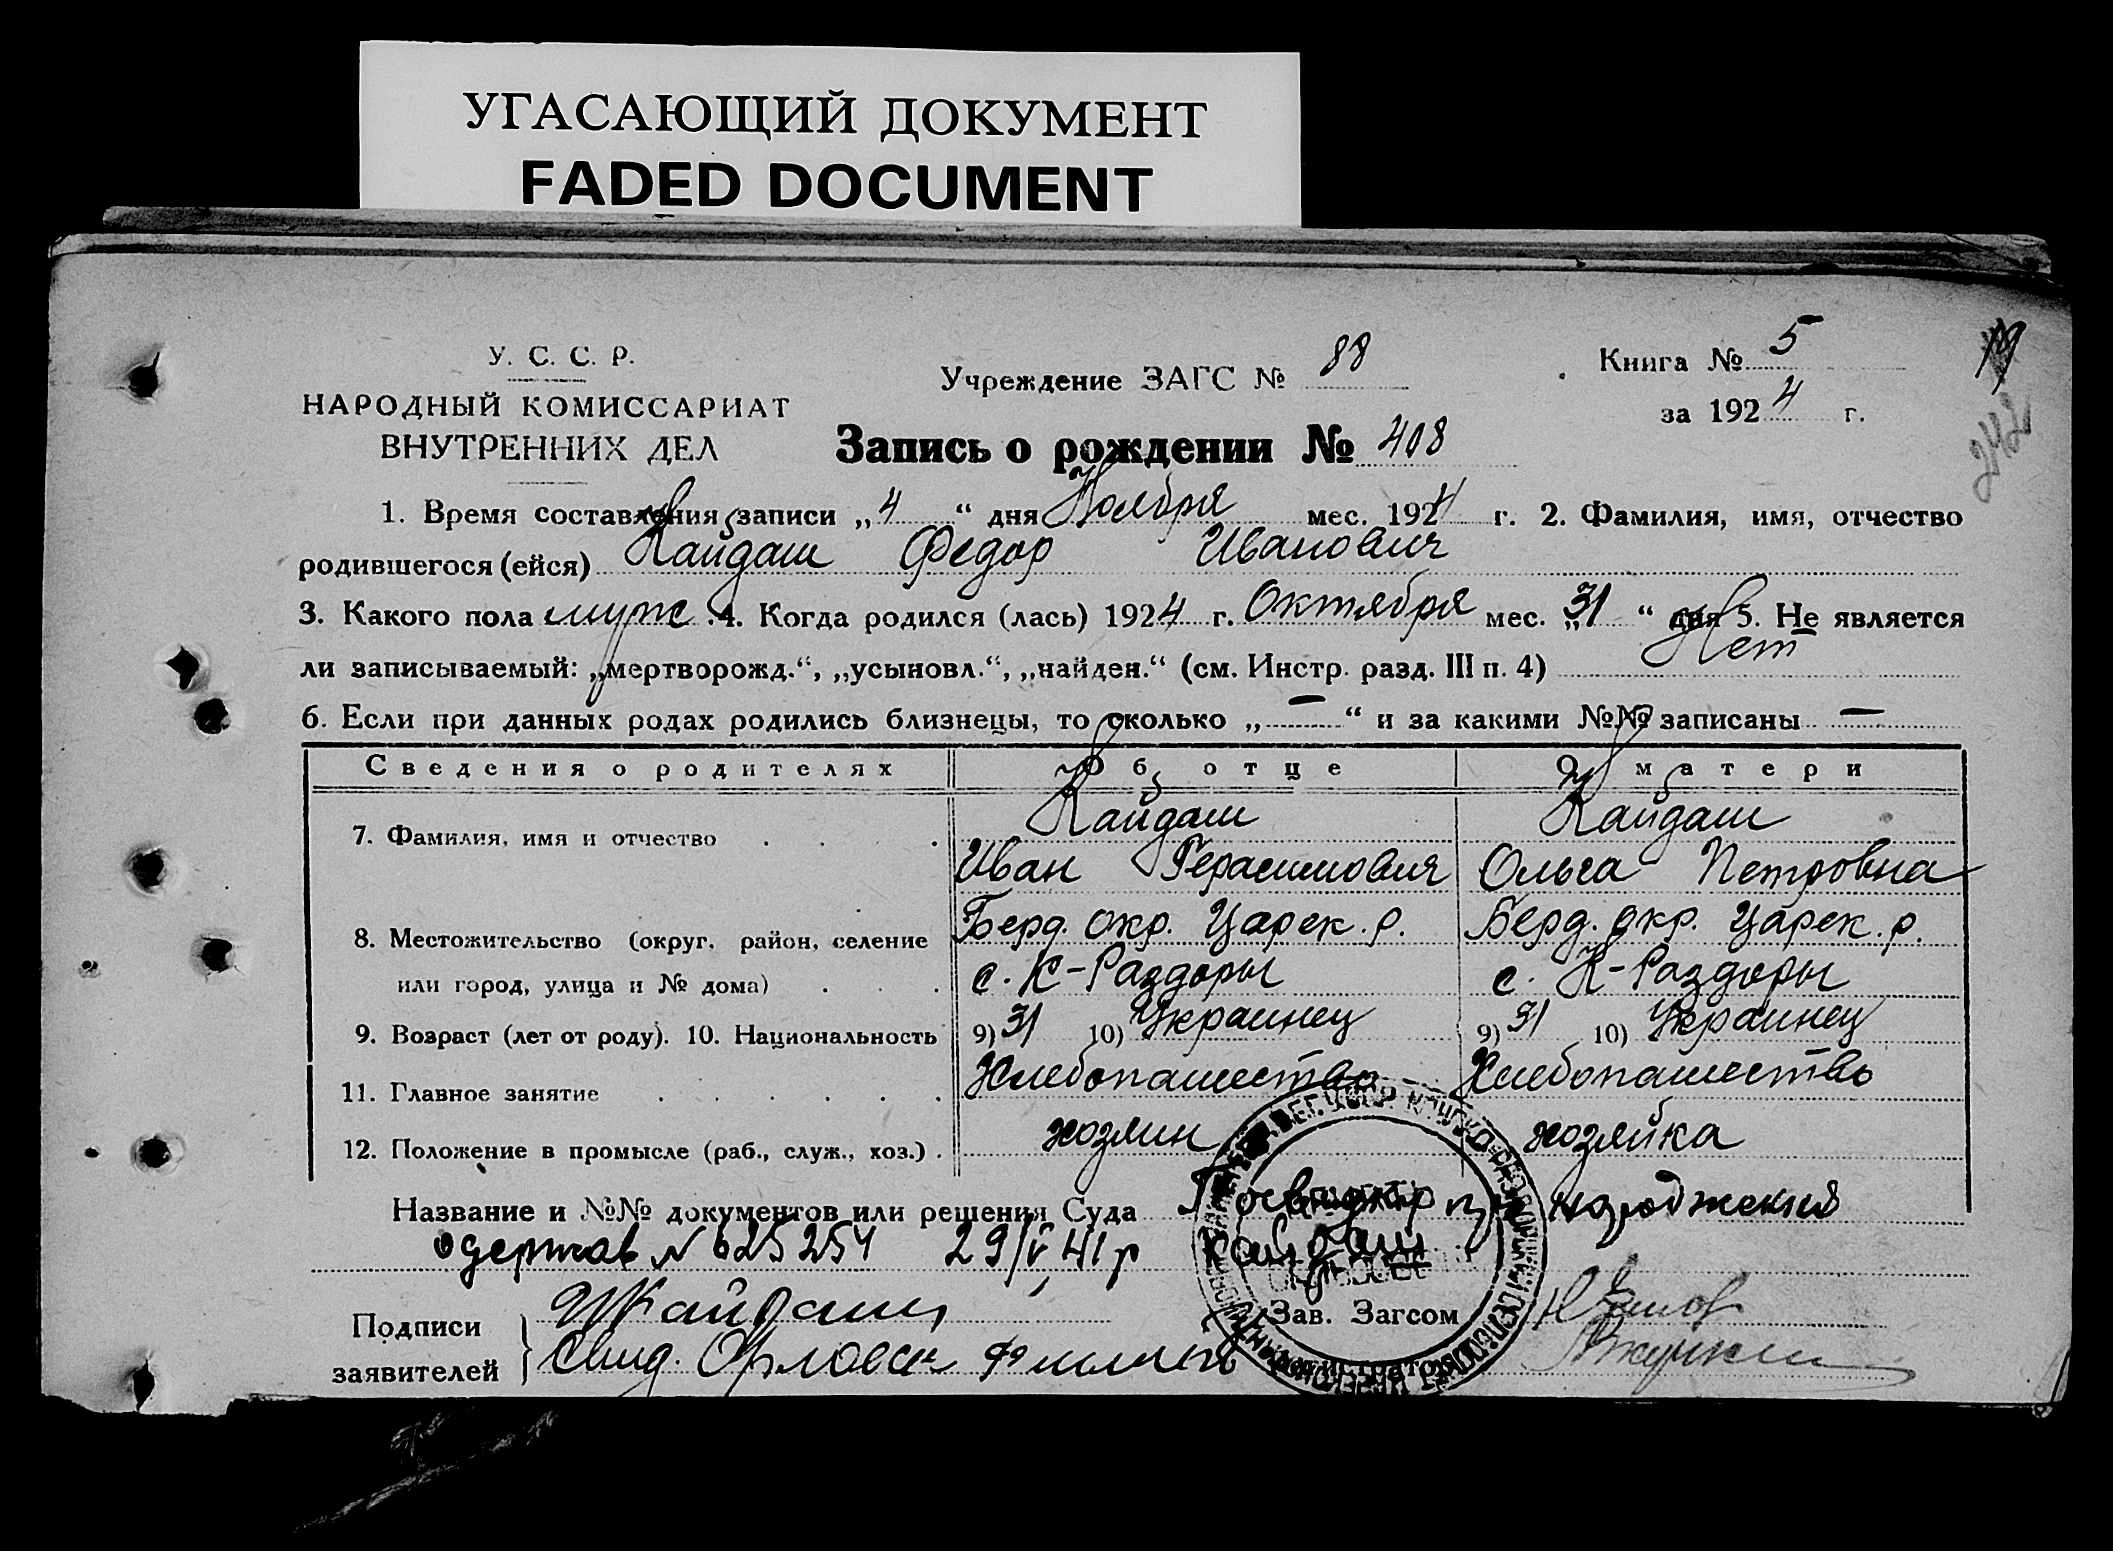 УГАСАЮЩИЙ ДОКУМЕНТ
FADED DOCUMENT
У. С. С. Р.
НАРОДНЫЙ КОМИССАРИАТ
ВНУТРЕННИХ ДЕЛ
Учреждение ЗАГС № 88
Книга № 5
за 1924 г.
19
242
Запись о рождении № 408
1. Время составления записи „4“ дня Ноября мес. 1924 г. 2. Фамилия, имя, отчество
родившегося (ейся) Кайдаш Федор Иванович
3. Какого пола муж. 4. Когда родился (лась) 1924 г. Октября мес. „31“ дня 5. Не является
ли записываемый: „мертворожд.“, „усыновл.“, „найден.“ (см. Инстр. разд. III п. 4) Нет
6. Если при данных родах родились близнецы, то сколько „—“ и за какими №№ записаны —
Сведения о родителях Об отце О матери
7. Фамилия, имя и отчество . . . . Кайдаш Кайдаш
Иван Герасимович Ольга Петровна
8. Местожительство (округ, район, селение Берд. окр. Царек. р. Берд. окр. Царек. р.
или город, улица и № дома) . . . с. К-Раздоры с. К-Раздоры
9. Возраст (лет от роду). 10. Национальность 9) 31 10) Украинец 9) 31 10) Украинец
11. Главное занятие . . . . . . Хлебопашество Хлебопашество
12. Положение в промысле (раб., служ., хоз.) . хозяин хозяйка
Название и №№ документов или решения Суда про народження
одержав № 625254 29/V 41 р Кайдаш
Подписи
заявителей
И Кайдаш
Свид. Орловск
Зав. Загсом